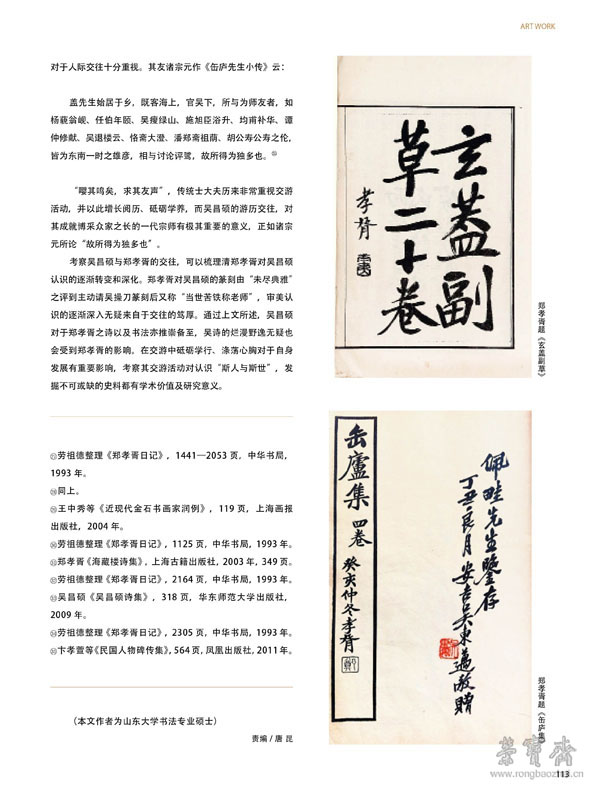 ART WORK
对于人际交往十分重视。其友诸宗元作《缶庐先生小传》云：
盖先生始居于乡，既客海上，官吴下，所与为师友者，如
杨藐翁岘、任伯年颐、吴瘦绿山、施旭臣浴升、均甫补华、谭
仲修献、吴退楼云、恪斋大澄、潘郑斋祖荫、胡公寿公寿之伦，
皆为东南一时之雄彦，相与讨论评骘，故所得为独多也。㉟
“嘤其鸣矣，求其友声”，传统士大夫历来非常重视交游
活动，并以此增长阅历、砥砺学养，而吴昌硕的游历交往，对
其成就博采众家之长的一代宗师有极其重要的意义，正如诸宗
元所论“故所得为独多也”。
考察吴昌硕与郑孝胥的交往，可以梳理清郑孝胥对吴昌硕
认识的逐渐转变和深化。郑孝胥对吴昌硕的篆刻由“未尽典雅”
之评到主动请吴操刀篆刻后又称“当世苦铁称老师”，审美认
识的逐渐深入无疑来自于交往的笃厚。通过上文所述，吴昌硕
对于郑孝胥之诗以及书法亦推崇备至，吴诗的烂漫野逸无疑也
会受到郑孝胥的影响，在交游中砥砺学行、涤荡心胸对于自身
发展有重要影响，考察其交游活动对认识“斯人与斯世”，发
掘不可或缺的史料都有学术价值及研究意义。
劳祖德整理《郑孝胥日记》，1441—2053 页，中华书局，
1993 年。
同上。
王中秀等《近现代金石书画家润例》，119 页，上海画报
出版社，2004 年。
劳祖德整理《郑孝胥日记》，1125 页，中华书局，1993 年。
郑孝胥《海藏楼诗集》，上海古籍出版社，2003 年，349 页。
劳祖德整理《郑孝胥日记》，2164 页，中华书局，1993 年。
吴昌硕《吴昌硕诗集》，318 页，华东师范大学出版社，
2009 年。
劳祖德整理《郑孝胥日记》，2305 页，中华书局，1993 年。
卞孝萱等《民国人物碑传集》，564 页，凤凰出版社，2011 年。
（本文作者为山东大学书法专业硕士）
责编 / 唐 昆
玄蓋副
草二十卷
孝胥
郑孝胥题《玄盖副草》
缶廬集 四卷
癸亥仲冬孝胥
佩畦先生鑒存
丁丑良月 安吉吳東邁敬贈
郑孝胥题《缶庐集》
榮寳齋
113
www.rongbaozhai.cn